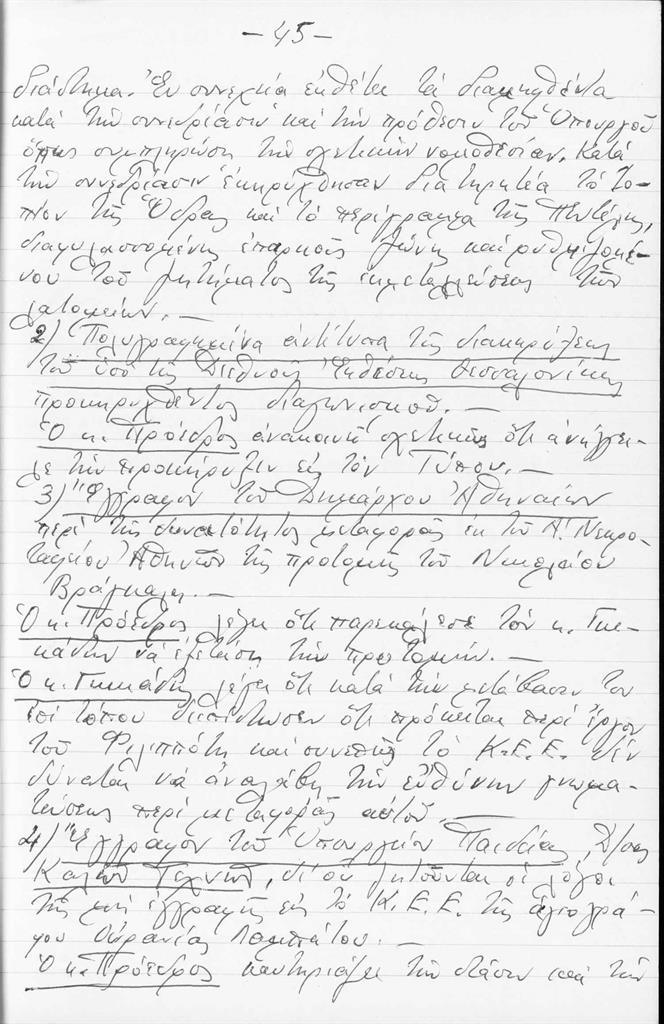 - 45 -
διάστημα. Ἐν συνεχείᾳ ἐκθέτει τὰ διαμειφθέντα
κατὰ τὴν συνεδρίασιν καὶ τὴν πρόθεσιν τοῦ Ὑπουργοῦ
ὅπως συμπληρώσῃ τὴν σχετικὴν νομοθεσίαν. Κατὰ
τὴν συνεδρίασιν ἐκηρύχθησαν διατηρητέα τὸ το-
πίον τῆς Ὕδρας καὶ τὸ περίγραμμα τῆς Πεντέλης,
διαφυλασσομένης ἐπαρκοῦς ζώνης καὶ ρυθμιζομέ-
νου τοῦ ζητήματος τῆς ἐκμεταλλεύσεως τῶν
λατομείων. —
2) Πολυγραφημένα ἀντίτυπα τῆς διακηρύξεως
τοῦ ὑπὸ τῆς Διεθνοῦς Ἐκθέσεως Θεσσαλονίκης
προκηρυχθέντος διαγωνισμοῦ. —
Ὁ κ. Πρόεδρος ἀνακοινοῖ σχετικῶς ὅτι ἀνήγγει-
λε τὴν προκήρυξιν εἰς τὸν Τύπον. —
3) Ἔγγραφον τοῦ Δημάρχου Ἀθηναίων
περὶ τῆς δυνατότητος μεταφορᾶς ἐκ τοῦ Α΄ Νεκρο-
ταφείου Ἀθηνῶν τῆς προτομῆς τοῦ Νικολάου
. —
Ὁ κ. Πρόεδρος λέγει ὅτι παρεκάλεσε τὸν κ.
νὰ ἐξετάσῃ τὴν προτομήν. —
Ὁ κ. λέγει ὅτι κατὰ τὴν μετάβασίν του
ἐπὶ τόπου διεπίστωσεν ὅτι πρόκειται περὶ ἔργου
τοῦ Φιλιππότη καὶ συνεπῶς τὸ Κ.Ε.Ε. δὲν
δύναται νὰ ἀναλάβῃ τὴν εὐθύνην γνωμα-
τεύσεως περὶ μεταφορᾶς αὐτοῦ. —
4) Ἔγγραφον τοῦ Ὑπουργείου Παιδείας, Δ/σις
Καλῶν Τεχνῶν, δι' οὗ ζητοῦνται οἱ λόγοι
τῆς μὴ ἐγγραφῆς εἰς τὸ Κ.Ε.Ε. τῆς ἁγιογρά-
φου Οὐρανίας . —
Ὁ κ. Πρόεδρος καυτηριάζει τὴν στάσιν καὶ τὴν